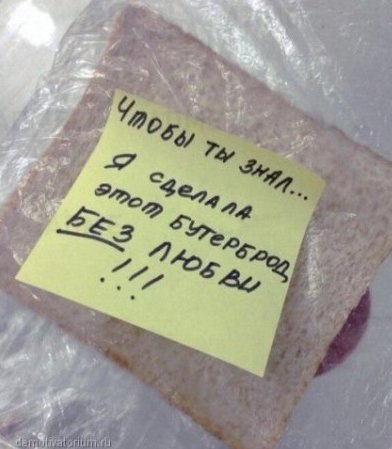 Чтобы ты знал...
Я сделала
этот бутерброд
БЕЗ любви
!!!
demotivatorium.ru